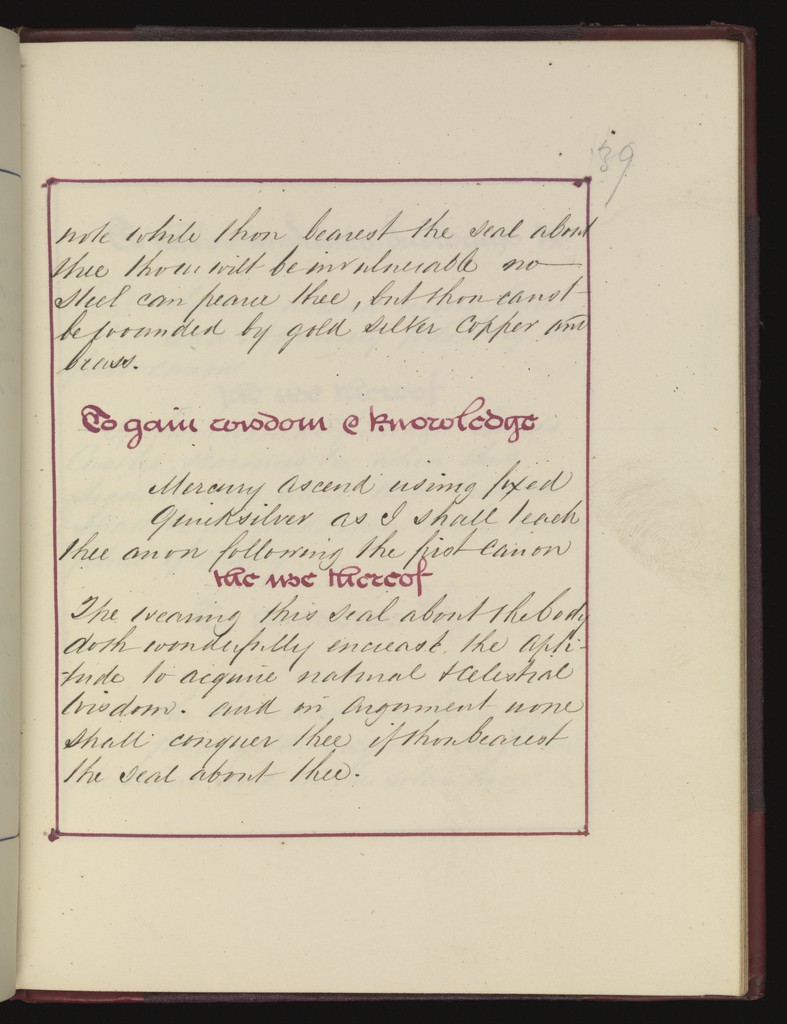 39
note while thou bearest the seal about
thee thou wilt be invulnerable no
steel can pearce thee, but thou canst
be wounded by gold silver copper and
brass.
To gain wisdom & knowledge
Mercury Ascend using fixed
Quicksilver as I shall teach
thee anon following the first canon
the use thereof
The wearing this seal about the body
doth wonderfully encrease the apti-
-tude to acquire natural & Celestial
Wisdom. and in Argument none
shall conquer thee if thou bearest
the seal about thee.